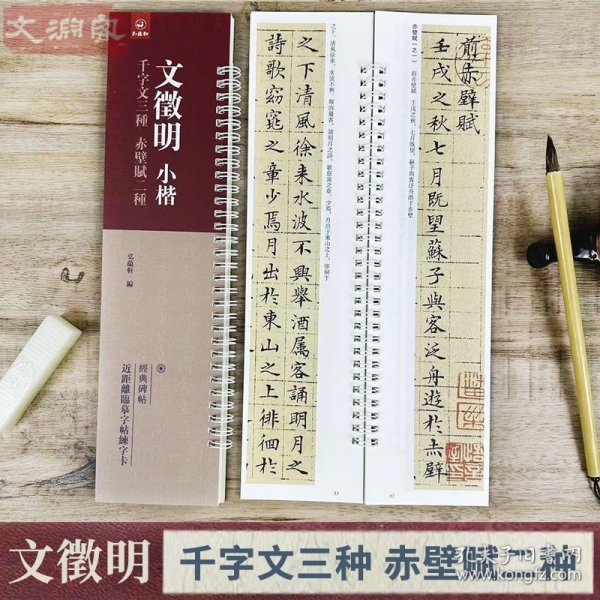 文淵軒
弘蘊軒
文徵明 小楷
千字文三種 赤壁賦二種
弘蘊軒 編
經典碑帖
近距離臨摹字帖練字卡
赤壁賦（之一） 前赤壁賦 壬戌之秋，七月既望，蘇子與客泛舟游于赤壁
前赤壁賦
壬戌之秋七月既望蘇子與客泛舟遊於赤壁
52
之下。清風徐來，水波不興。舉酒屬客，誦明月之詩，歌窈窕之章。少焉，月出于東山之上，徘徊于
之下清風徐来水波不興舉酒属客誦明月之
詩歌窈窕之章少焉月出於東山之上徘徊於
53
文徵明 千字文三种 赤壁赋二种
孔夫子旧书网
www.kongfz.com